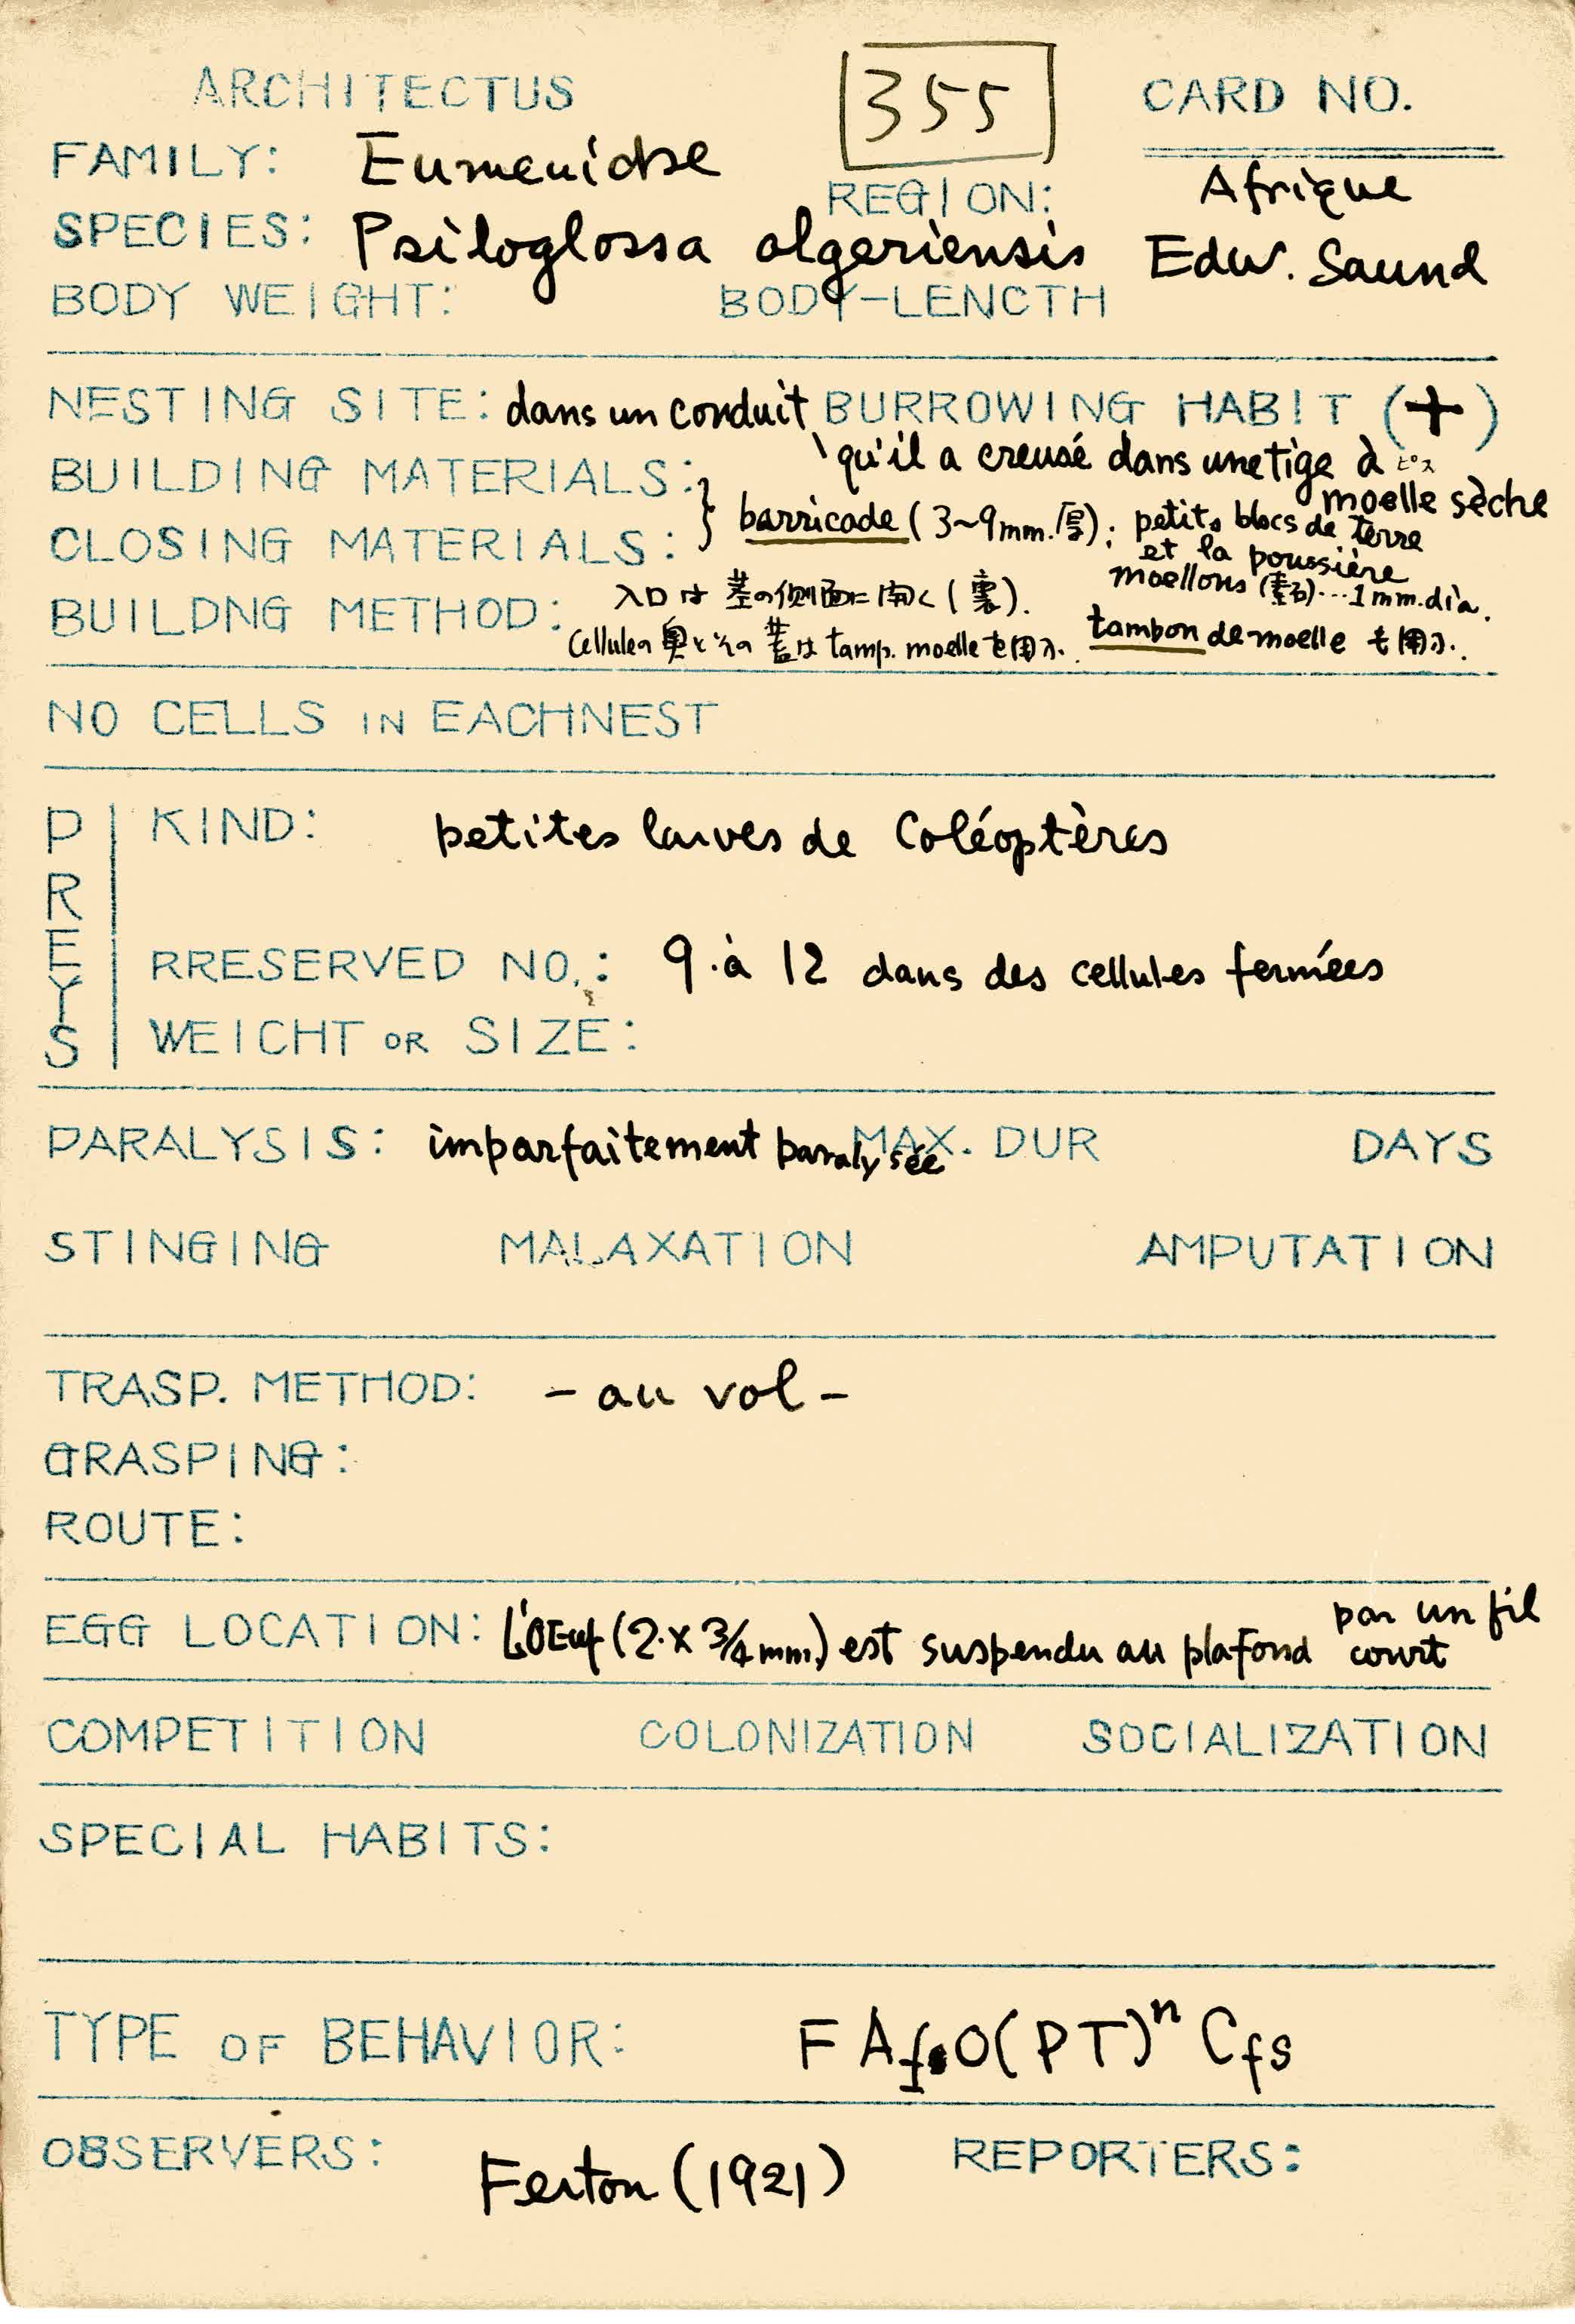 ARCHITECTUS 355 CARD NO.
FAMILY: Eumenidae REGION: Afrique
SPECIES: Psiloglossa algeriensis Edw. Saund
BODY WEIGHT: BODY-LENCTH
NESTING SITE: dans un conduit BURROWING HABIT (+)
qu'il a creusé dans une tige à moelle sèche
BUILDING MATERIALS:
CLOSING MATERIALS: } barricade (3~9mm.厚); petits blocs de terre
et la poussière
moellons (素石)...1mm.dia.
BUILDNG METHOD: 入口は茎の側面に開く(裏).
tambon de moelle も用う.
Celluleの奥とその蓋は tamp. moelle を用う.
NO CELLS IN EACHNEST
PREYS
KIND: petites larves de Coléoptères
RRESERVED NO.: 9 à 12 dans des cellules fermées
WEICHT OR SIZE:
PARALYSIS: imparfaitement paralysée MAX. DUR DAYS
STINGING MALAXATION AMPUTATION
TRASP. METHOD: - au vol -
GRASPING:
ROUTE:
EGG LOCATION: L'OEuf (2 x 3/4 mm.) est suspendu au plafond par un fil court
COMPETITION COLONIZATION SOCIALIZATION
SPECIAL HABITS:
TYPE OF BEHAVIOR: F Af O(PT)ⁿ Cfs
OBSERVERS: Ferton (1921) REPORTERS: